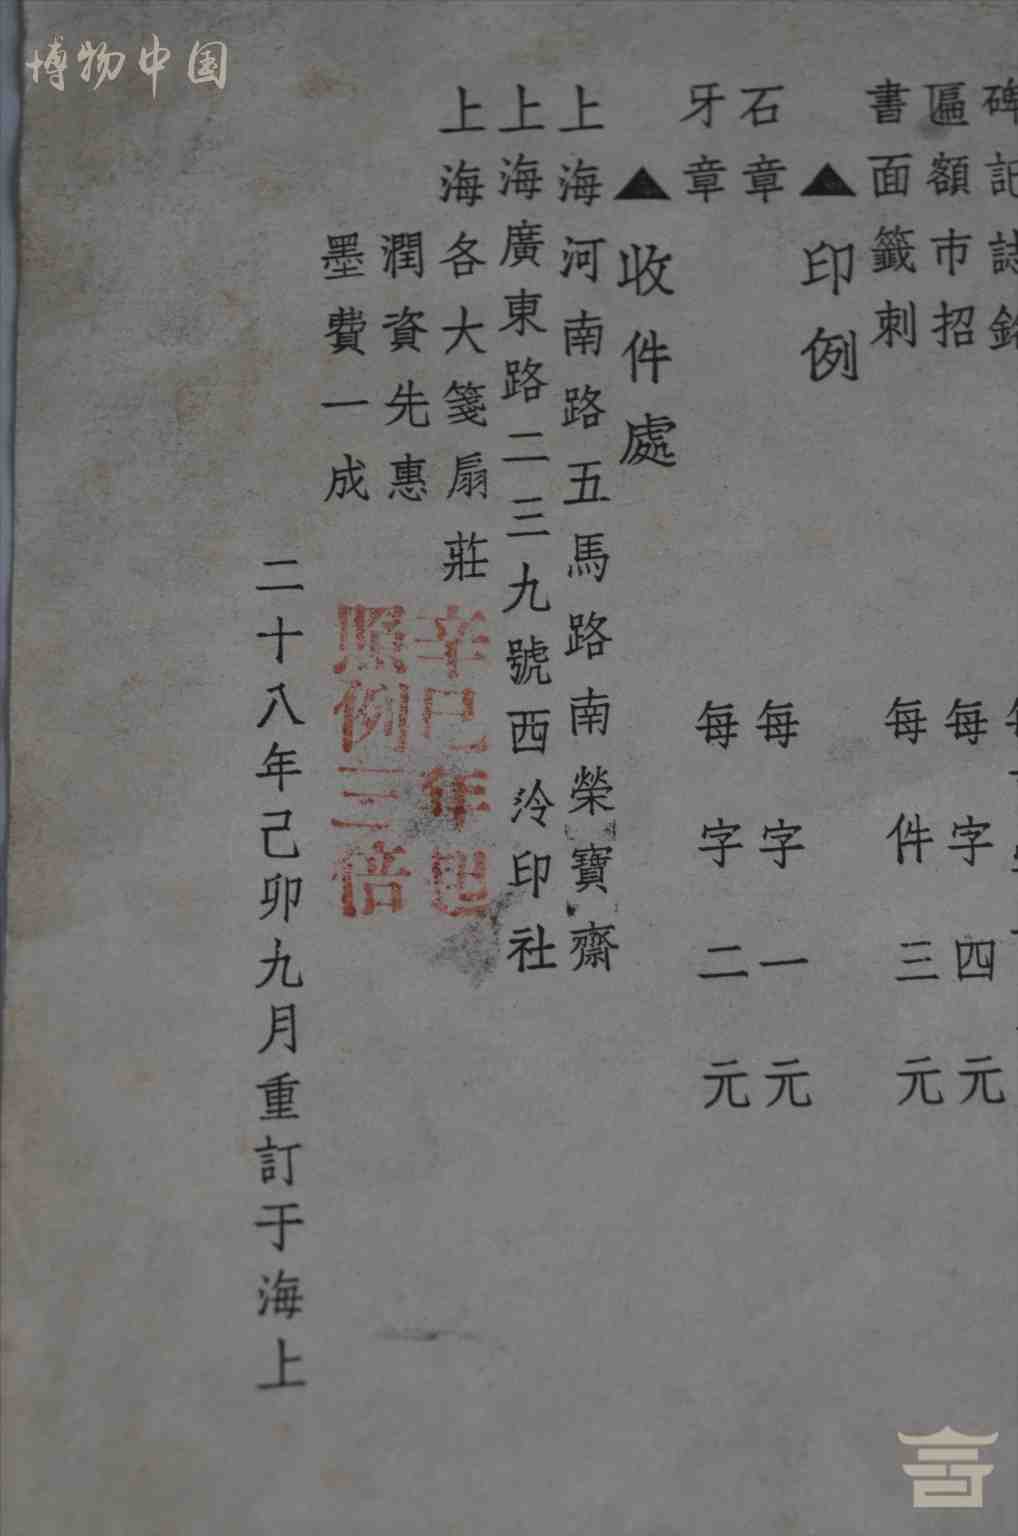 博物中国
碑記誌銘
匾額市招 每字四元
書面籤刺 每件三元
▲印例
石章 每字一元
牙章 每字二元
▲收件處
上海河南路五馬路南榮寶齋
上海廣東路二三九號西泠印社
上海各大箋扇莊
潤資先惠
墨費一成
辛巳年起
照例三倍
二十八年己卯九月重訂于海上